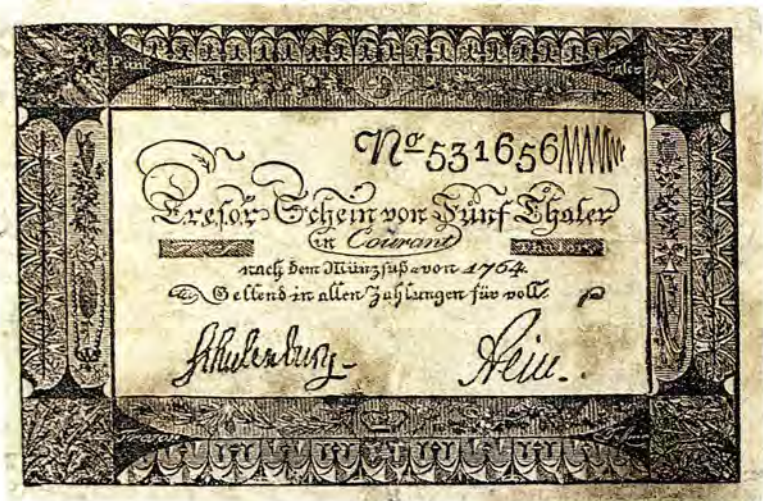 Fünf Thaler
Nº 531656
Tresor-Schein von Fünf Thaler
in Courant
nach dem Münzfuß von 1764.
Geltend in allen Zahlungen für voll.
Schulenburg
TRESOR